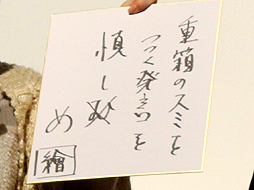 重箱のスミを
つつく発言を
慎し政
め
繪